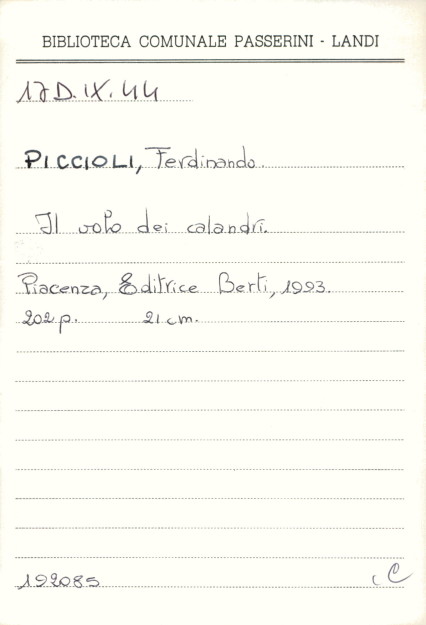 BIBLIOTECA COMUNALE PASSERINI - LANDI
17D.IX.44
PICCIOLI, Ferdinando
Il volo dei calandri.
Piacenza, Editrice Berti, 1993.
202 p. 21 cm.
192085 C